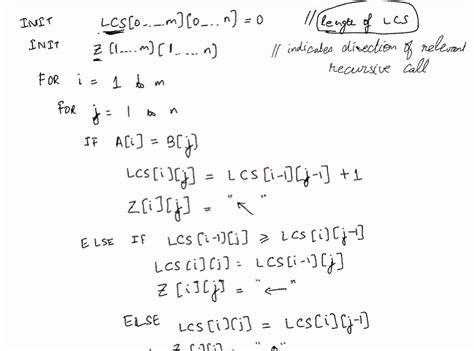 INIT LCS[0....m][0...n] = 0 // length of LCS
INIT Z[1....m][1....n] // indicates direction of relevant
recursive call
FOR i = 1 to m
FOR j = 1 to n
IF A[i] = B[j]
LCS[i][j] = LCS[i-1][j-1] + 1
Z[i][j] = "↖"
ELSE IF LCS[i-1][j] ⩾ LCS[i][j-1]
LCS[i][j] = LCS[i-1][j]
Z[i][j] = "←"
ELSE LCS[i][j] = LCS[i][j-1]
Z[i][j] =